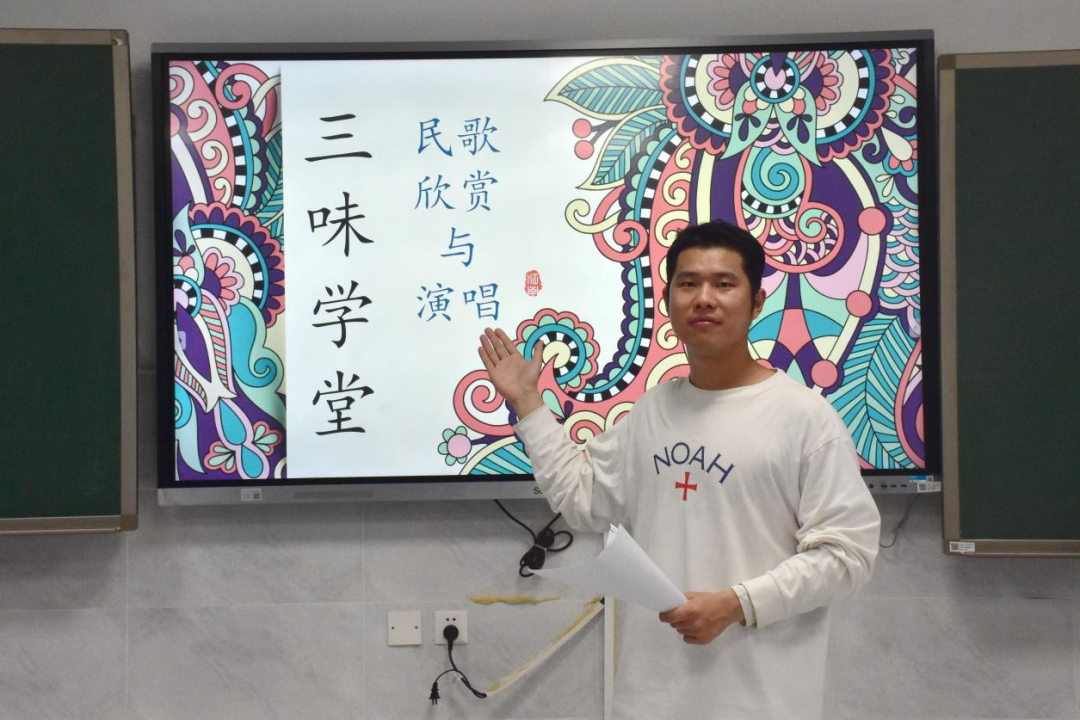 三味学堂
民歌
欣赏
与
演唱
NOAH